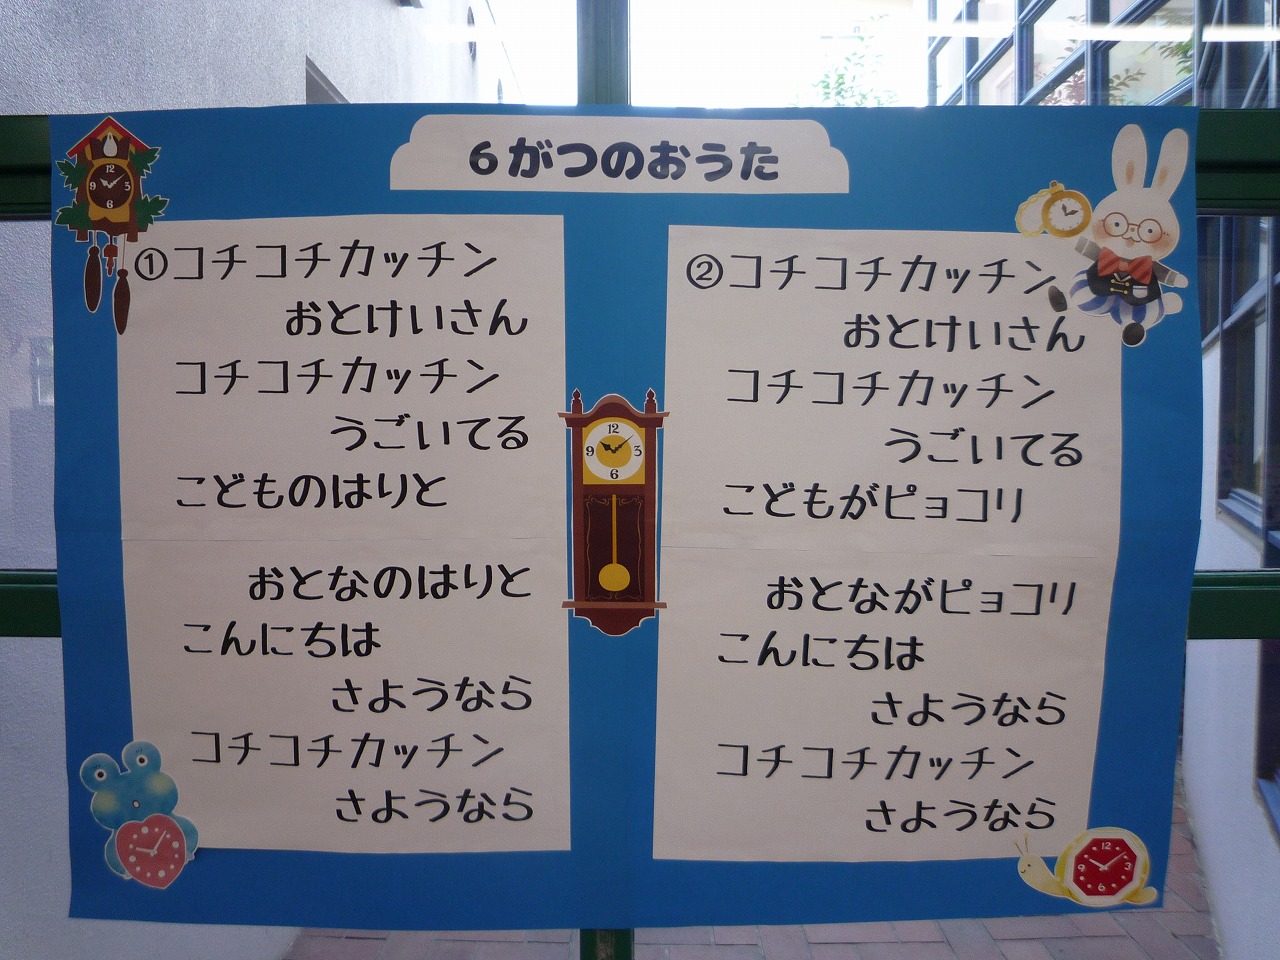 6がつのおうた
①コチコチカッチン
おとけいさん
コチコチカッチン
うごいてる
こどものはりと
おとなのはりと
こんにちは
さようなら
コチコチカッチン
さようなら
②コチコチカッチン
おとけいさん
コチコチカッチン
うごいてる
こどもがピョコリ
おとながピョコリ
こんにちは
さようなら
コチコチカッチン
さようなら
12
9 3
6
12
9 3
6
12
9 3
6